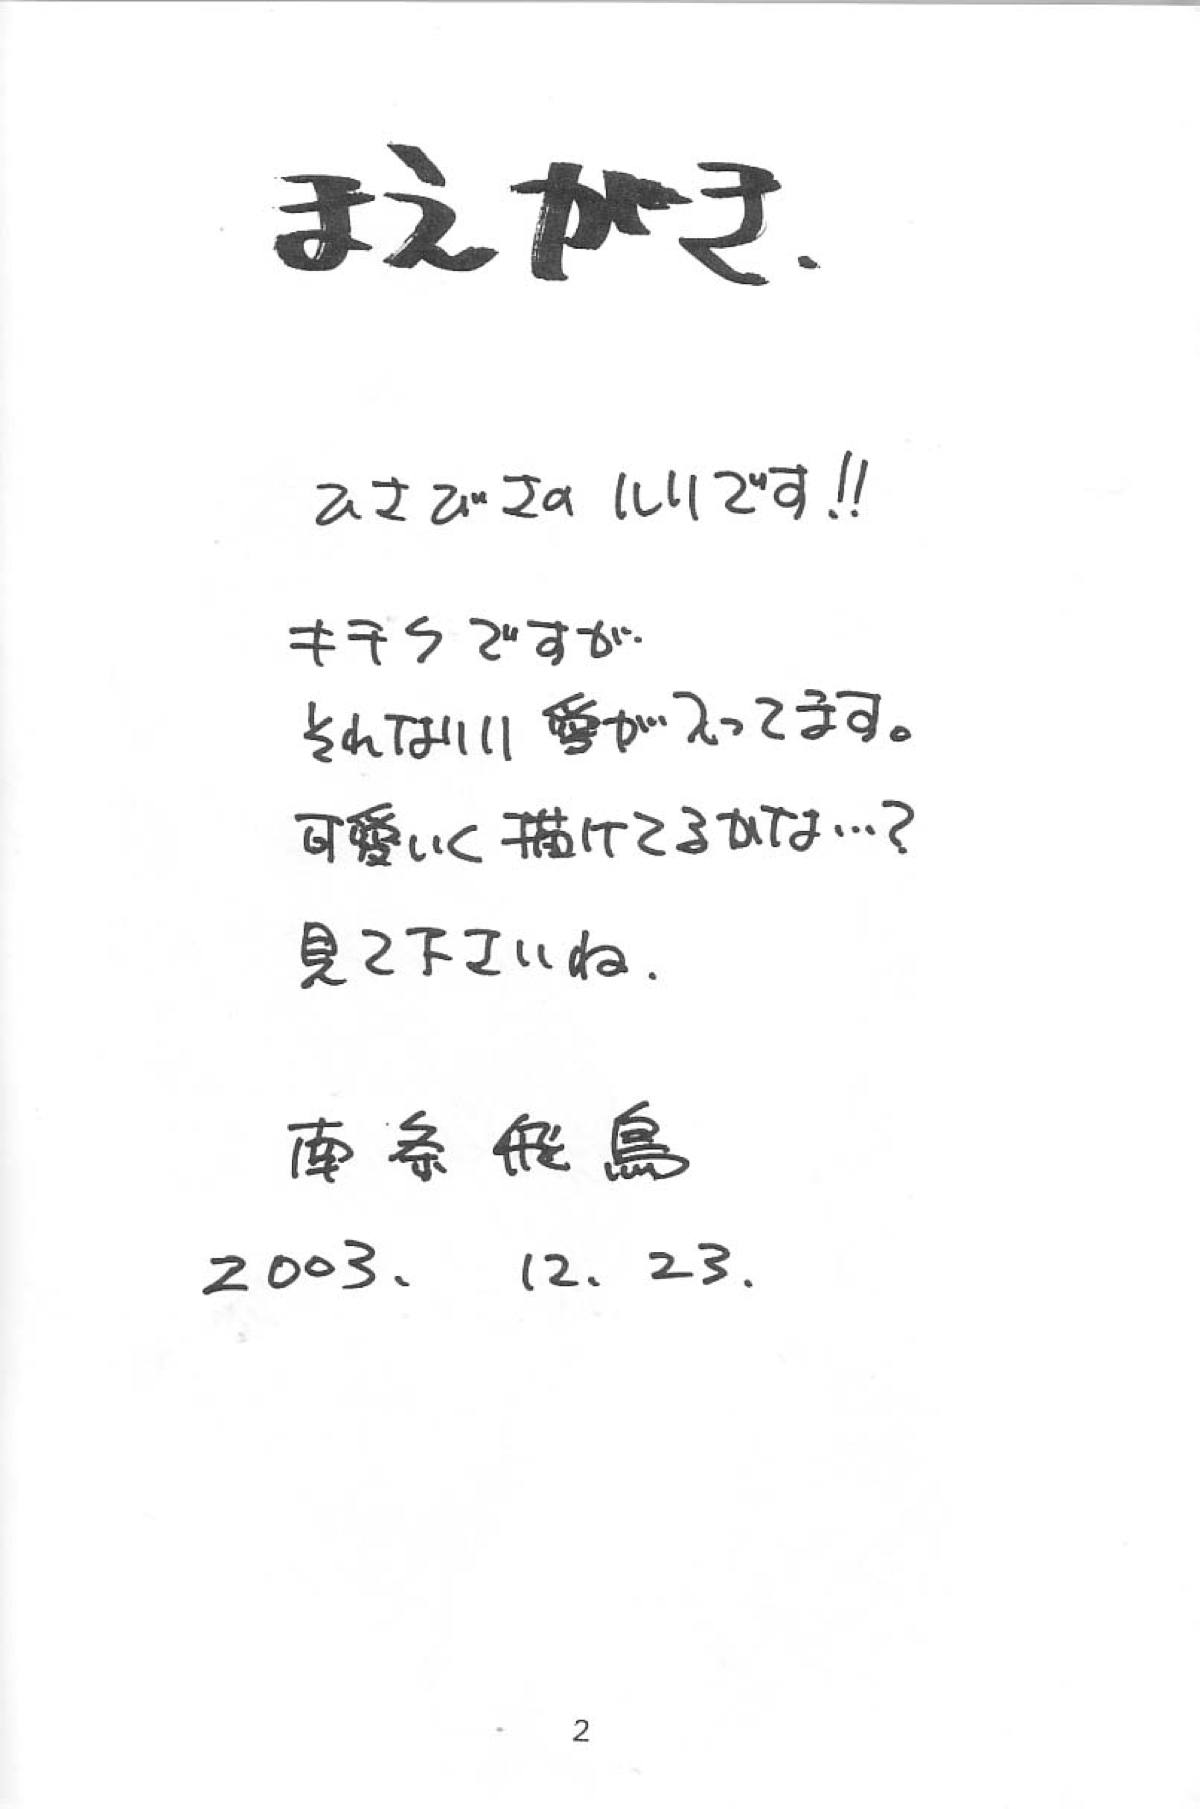 まえがき.
ひさびさの リリです!!
キチクですが
それなりに 愛が入ってます。
可愛いく 描けてるかな…?
見て下さいね.
南条飛鳥
2003. 12. 23.
2